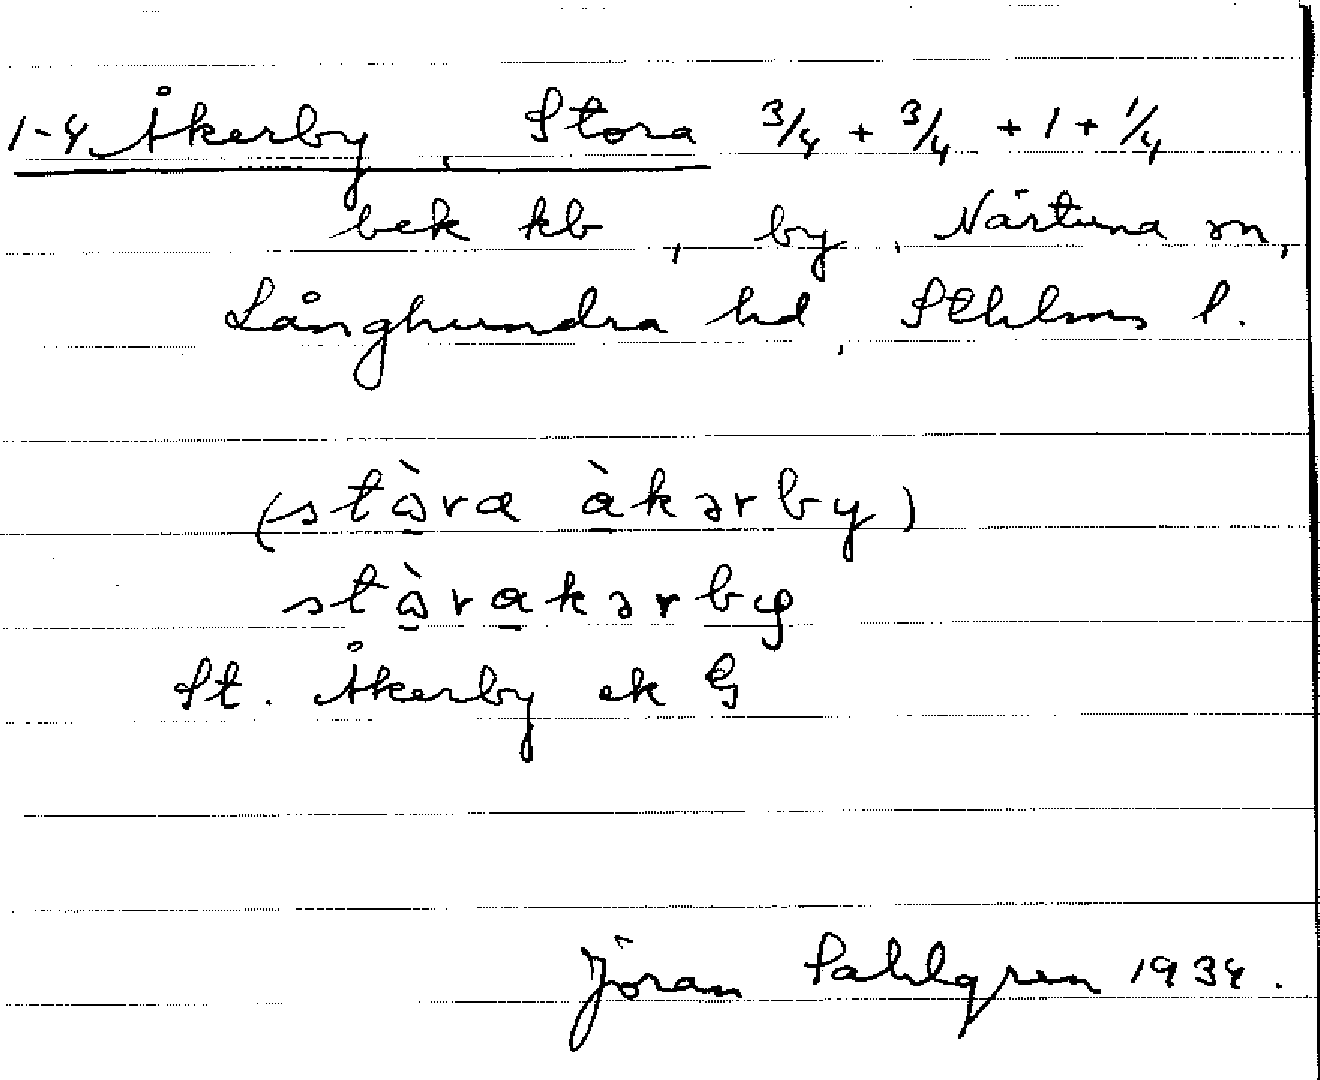 1-4 Åkerby, Stora 3/4 + 3/4 + 1 + 1/4
bek kb, by, Närtuna sn,
Långhundra hd, Sthlms l.
(stå̀ra à̱kərby)
stå̀ra̱kərby
St. Åkerby ek G
Jöran Sahlgren 1934.